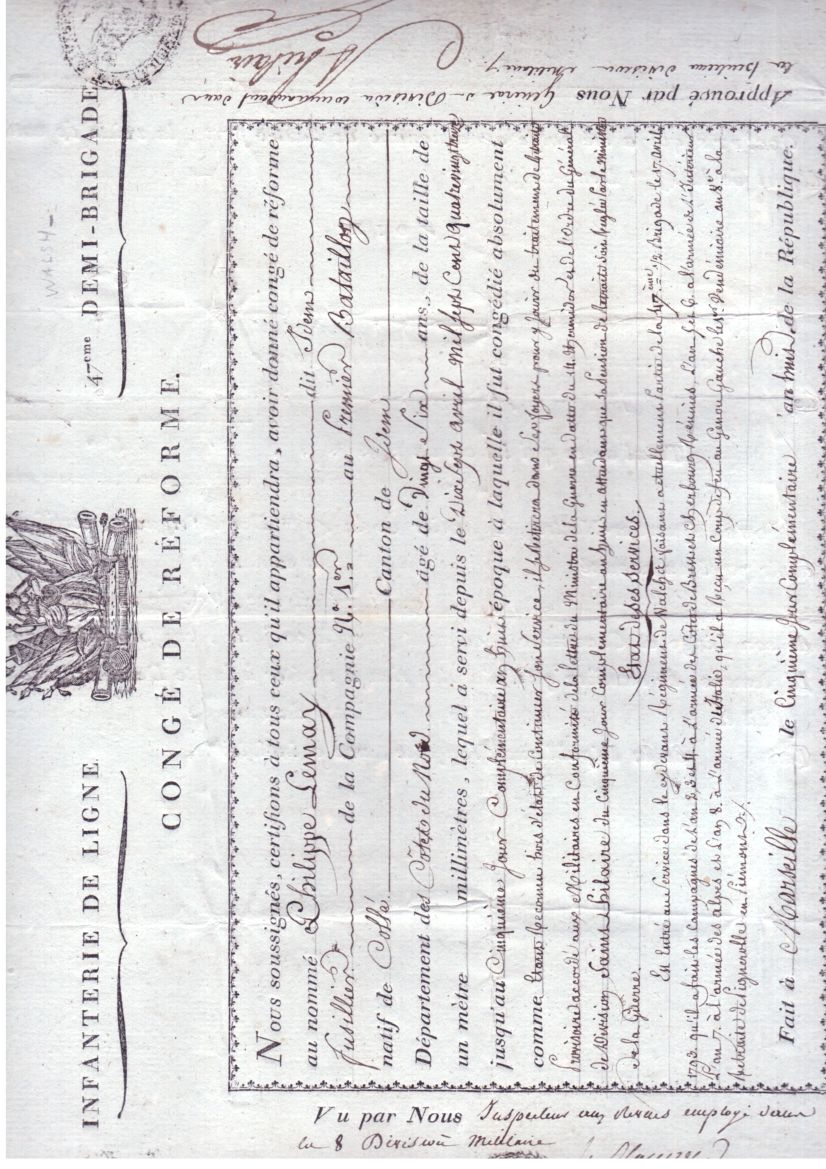 INFANTERIE DE LIGNE
47eme DEMI-BRIGADE
WALSH
CONGÉ DE RÉFORME.
Nous soussignés, certifions à tous ceux qu'il appartiendra, avoir donné congé de réforme
au nommé Philippe Lemay dit Idem
fusillier de la Compagnie No. 1er au Premier Bataillon
natif de Collé Canton de Idem
Département des Côtes du Nord âgé de Vingt Six ans, de la taille de
un mètre millimètres, lequel à servi depuis le Dix Sept avril mil sept Cens quatrevingt
jusqu'au Cinquième Jour Complémentaire an huit époque à laquelle il fut congédié absolument
comme étant Reconnu hors d'état de Continuer Son Service, il se retirera dans Ses foyers pour y Jouir du traitement de
Provisoire accordé aux Militaires en Conformité de la lettre du Ministre de la Guerre en datte du 14 thermidor et de l'Ordre du Général
de Division Saint hilaire du Cinquième Jour Complémentaire an huit en attendant que sa Pension de retraite soit réglée Par le Ministre
de la Guerre.
Etat de ses Services.
Est Entré au Service dans le cydevant Régiment de Walsh faisant actuellement Partie de la 47ème 1/2 Brigade le 17 avril
1793. qu'il a fait les Campagnes de L'an 2, 3 et 4 à L'armée des Côtes de Brest et Cherbourg Réunies, L'an 5 et 6 à l'armée de L'Intérieur
L'an 7 à L'armée des alpes et L'an 8 à L'armée d'Italie, qu'il a Reçu un Coup de feu au Genou Gauche le 1er Vendémiaire an 8e à la
Retraite de Pignerolle en Piémont
Fait à Marseille le Cinquième Jour Complémentaire an huit de la République.
Vu par Nous Inspecteur aux Revues employé dans
la 8 Division Militaire
Approuvé par Nous Général de Division commandant dans
la huitieme division militaire
St hilaire